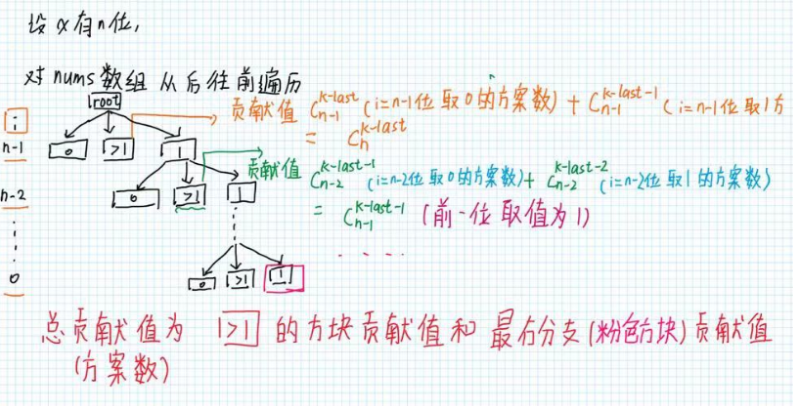 设 x 有 n 位,
对 nums 数组 从后往前遍历
root
i
贡献值 C_{n-1}^{k-last} (i=n-1位 取 0 的方案数) + C_{n-1}^{k-last-1} (i=n-1位 取1方
= C_n^{k-last}
n-1
0 >1 1
贡献值 C_{n-2}^{k-last-1} (i=n-2位 取 0 的方案数) + C_{n-2}^{k-last-2} (i=n-2位 取1 的方案数)
n-2
0 >1 1
= C_{n-1}^{k-last-1} (前一位 取值为 1)
0
0 >1 1
总贡献值为 >1 的方块贡献值和 最右分支(粉色方块)贡献值
(方案数)